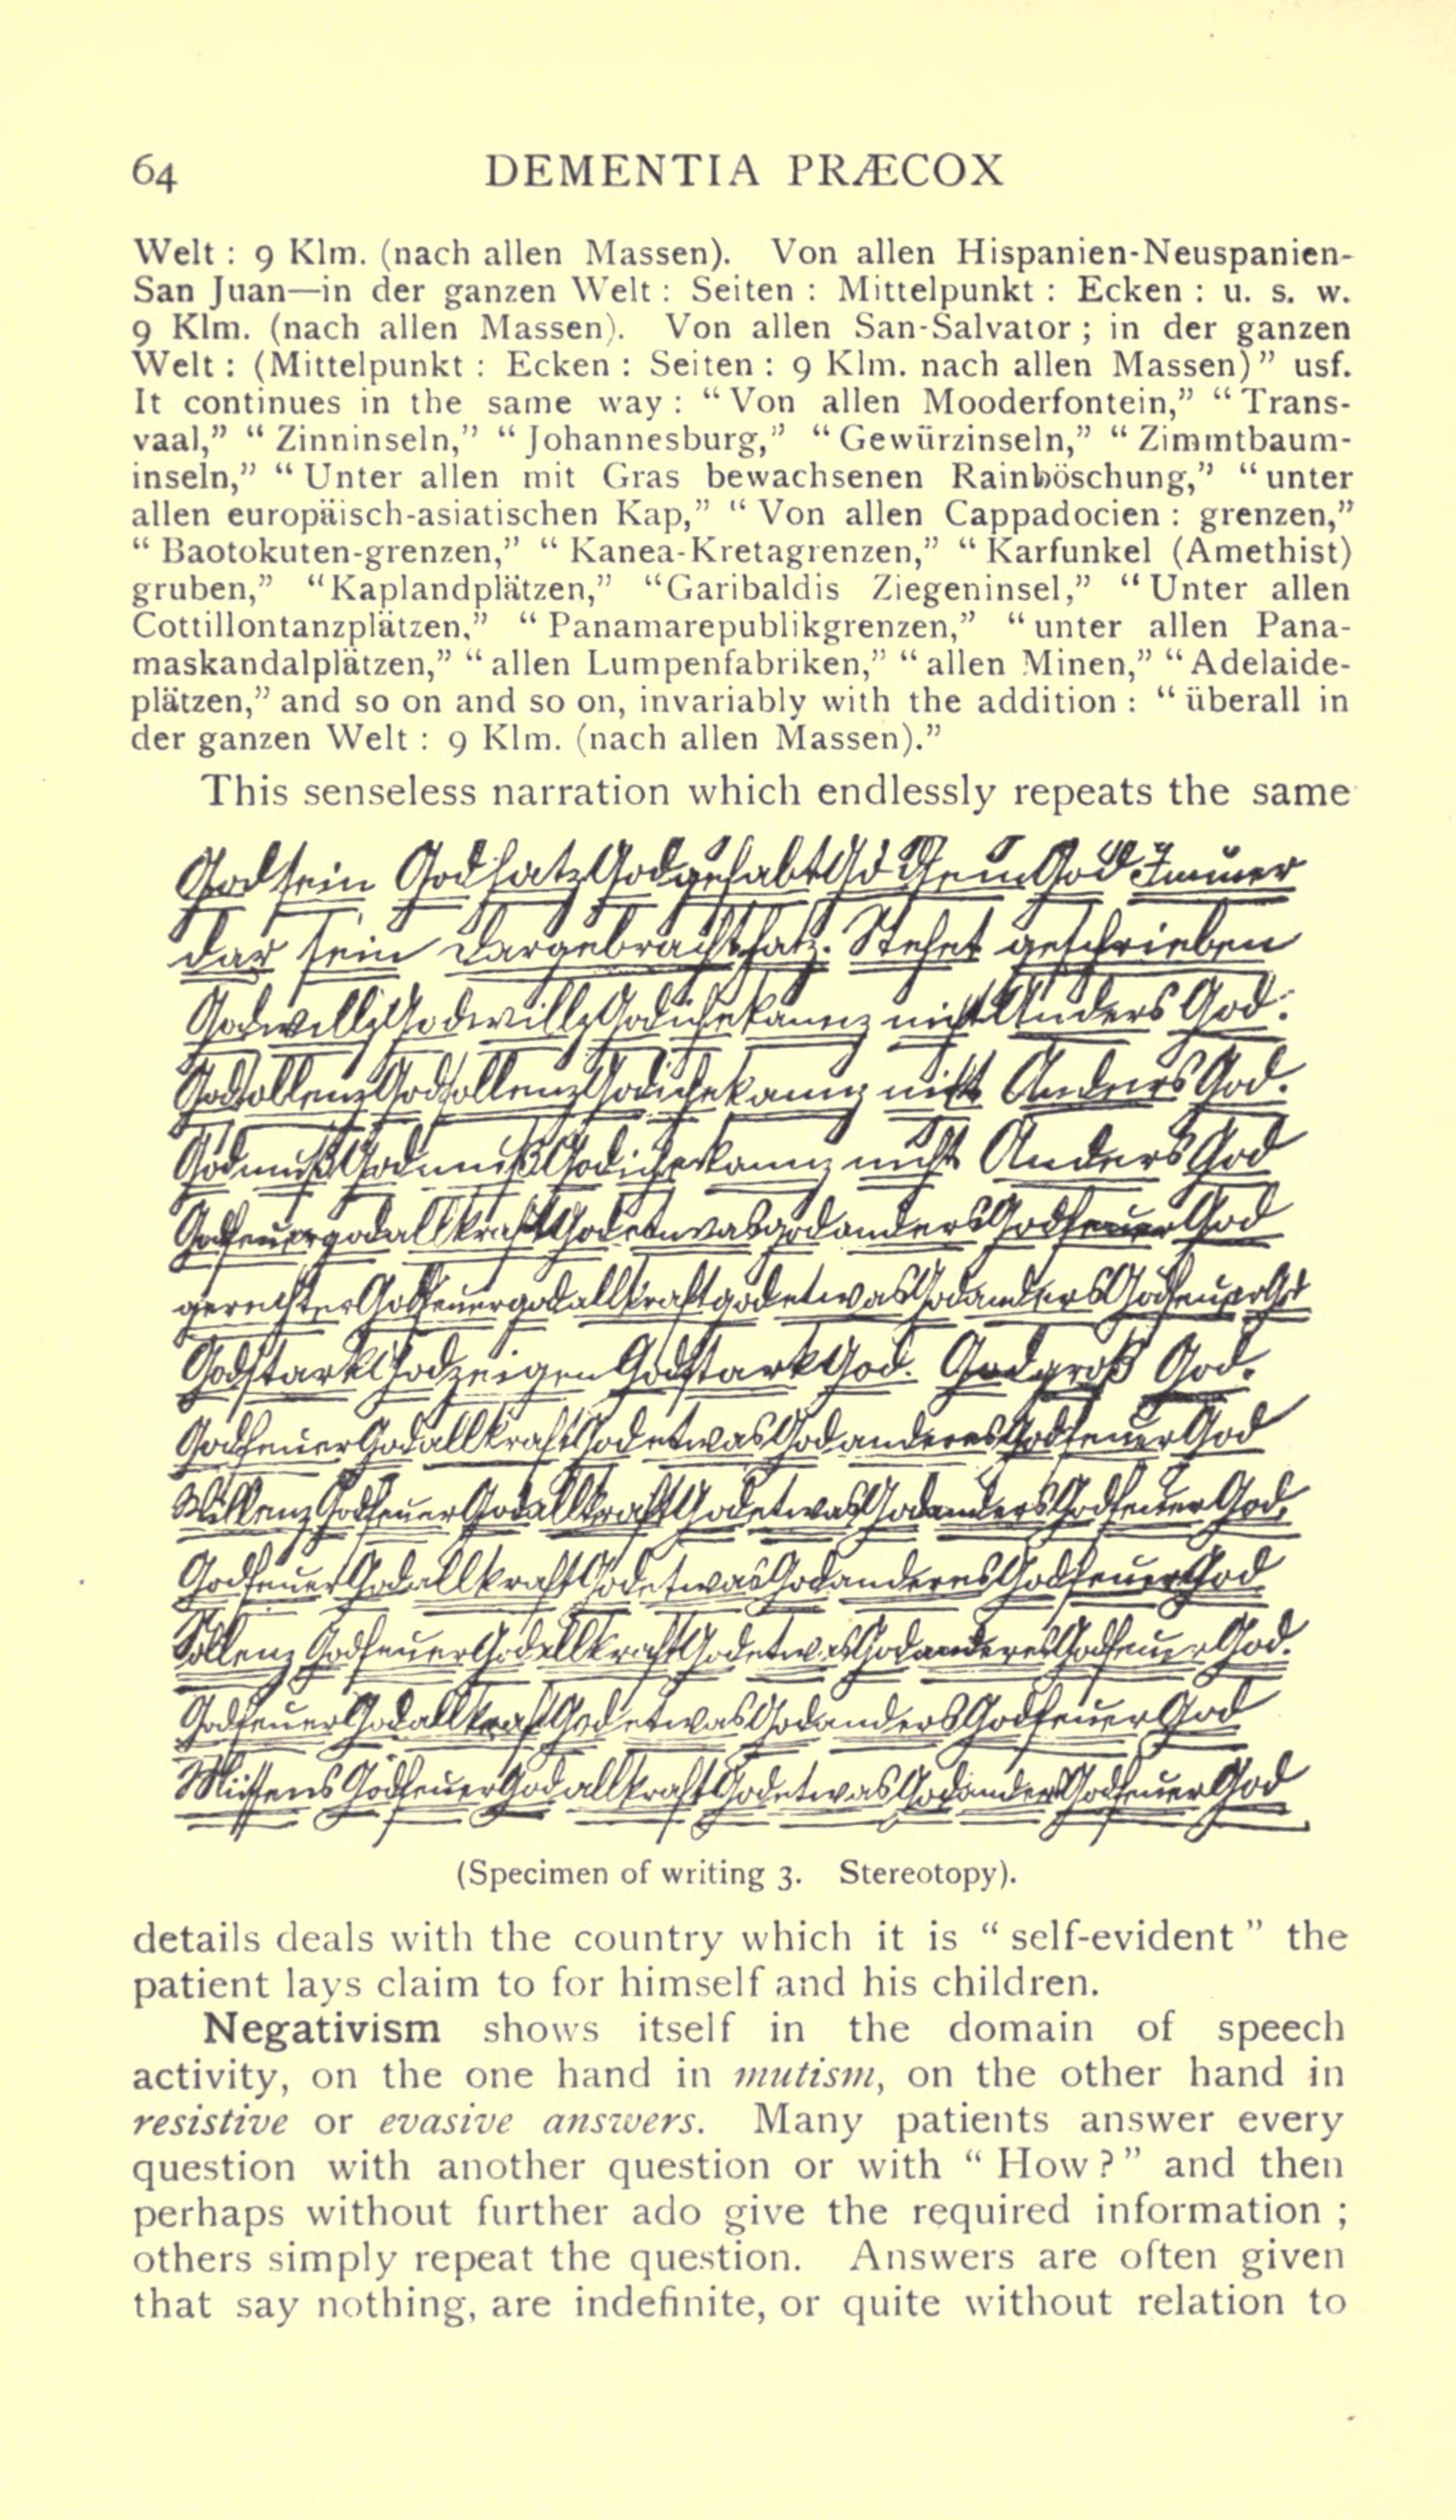 64 DEMENTIA PRÆCOX
Welt : 9 Klm. (nach allen Massen). Von allen Hispanien-Neuspanien-
San Juan—in der ganzen Welt : Seiten : Mittelpunkt : Ecken : u. s. w.
9 Klm. (nach allen Massen). Von allen San-Salvator ; in der ganzen
Welt : (Mittelpunkt : Ecken : Seiten : 9 Klm. nach allen Massen)” usf.
It continues in the same way : “Von allen Mooderfontein,” “Trans-
vaal,” “Zinninseln,” “Johannesburg,” “Gewürzinseln,” “Zimmtbaum-
inseln,” “Unter allen mit Gras bewachsenen Rainböschung,” “unter
allen europäisch-asiatischen Kap,” “Von allen Cappadocien : grenzen,”
“Baotokuten-grenzen,” “Kanea-Kretagrenzen,” “Karfunkel (Amethist)
gruben,” “Kaplandplätzen,” “Garibaldis Ziegeninsel,” “Unter allen
Cottillontanzplätzen,” “Panamarepublikgrenzen,” “unter allen Pana-
maskandalplätzen,” “allen Lumpenfabriken,” “allen Minen,” “Adelaide-
plätzen,” and so on and so on, invariably with the addition : “überall in
der ganzen Welt : 9 Klm. (nach allen Massen).”
This senseless narration which endlessly repeats the same
God sein God hatz God gehabt God Immer
dar sein dargebracht hatz. Stehet geschrieben
Godwillz Godwillz nicht Anders God.
Godsollenz Godsollenz nicht Anders God.
Godmuß Godmuß nicht Anders God
GodfeuergodallkraftGodetwasgodandersGodfeuerGod
gerechter GodfeuergodallkraftgodetwasGodandersGodfeuerGod
GodstarkGodzeigenGodstarkGod. Godgroß God.
GodfeuerGodallkraftGodetwasGodanderesGodfeuerGod
Willenz GodfeuerGodallkraftGodetwasGodandersGodfeuerGod.
GodfeuerGodallkraftGodetwasGodanderesGodfeuerGod
Sollenz GodfeuerGodallkraftGodetwasGodanderesGodfeuerGod.
GodfeuerGodallkraftGodetwasGodandersGodfeuerGod
Müssens GodfeuerGodallkraftGodetwasGodandersGodfeuerGod
(Specimen of writing 3. Stereotopy).
details deals with the country which it is “self-evident” the
patient lays claim to for himself and his children.
Negativism shows itself in the domain of speech
activity, on the one hand in mutism, on the other hand in
resistive or evasive answers. Many patients answer every
question with another question or with “How ?” and then
perhaps without further ado give the required information ;
others simply repeat the question. Answers are often given
that say nothing, are indefinite, or quite without relation to